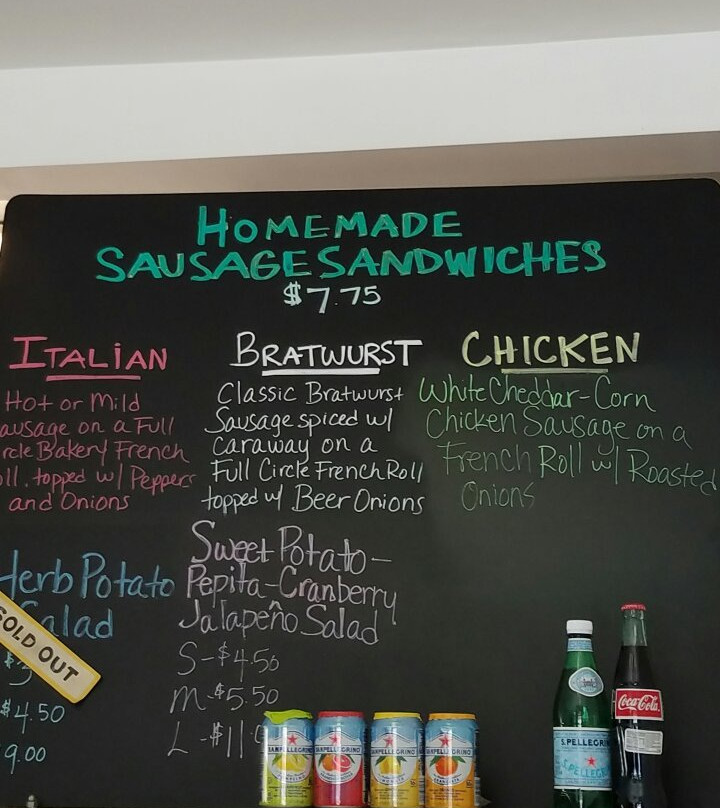 HOMEMADE
SAUSAGE SANDWICHES
$7.75
ITALIAN
Hot or Mild
ausage on a Full
rcle Bakery French
oll, topped w/ Peppers
and Onions
BRATWURST
Classic Bratwurst
Sausage spiced w/
caraway on a
Full Circle French Roll
topped w/ Beer Onions
CHICKEN
White Cheddar-Corn
Chicken Sausage on a
French Roll w/ Roasted
Onions
Herb Potato
Salad
SOLD OUT
$3
$4.50
9.00
Sweet Potato-
Pepita-Cranberry
Jalapeño Salad
S-$4.50
M-$5.50
L-$11
SANPELLEGRINO
SANPELLEGRINO
SANPELLEGRINO
SANPELLEGRINO
S.PELLEGRINO
S.PELLEGRINO
Coca-Cola